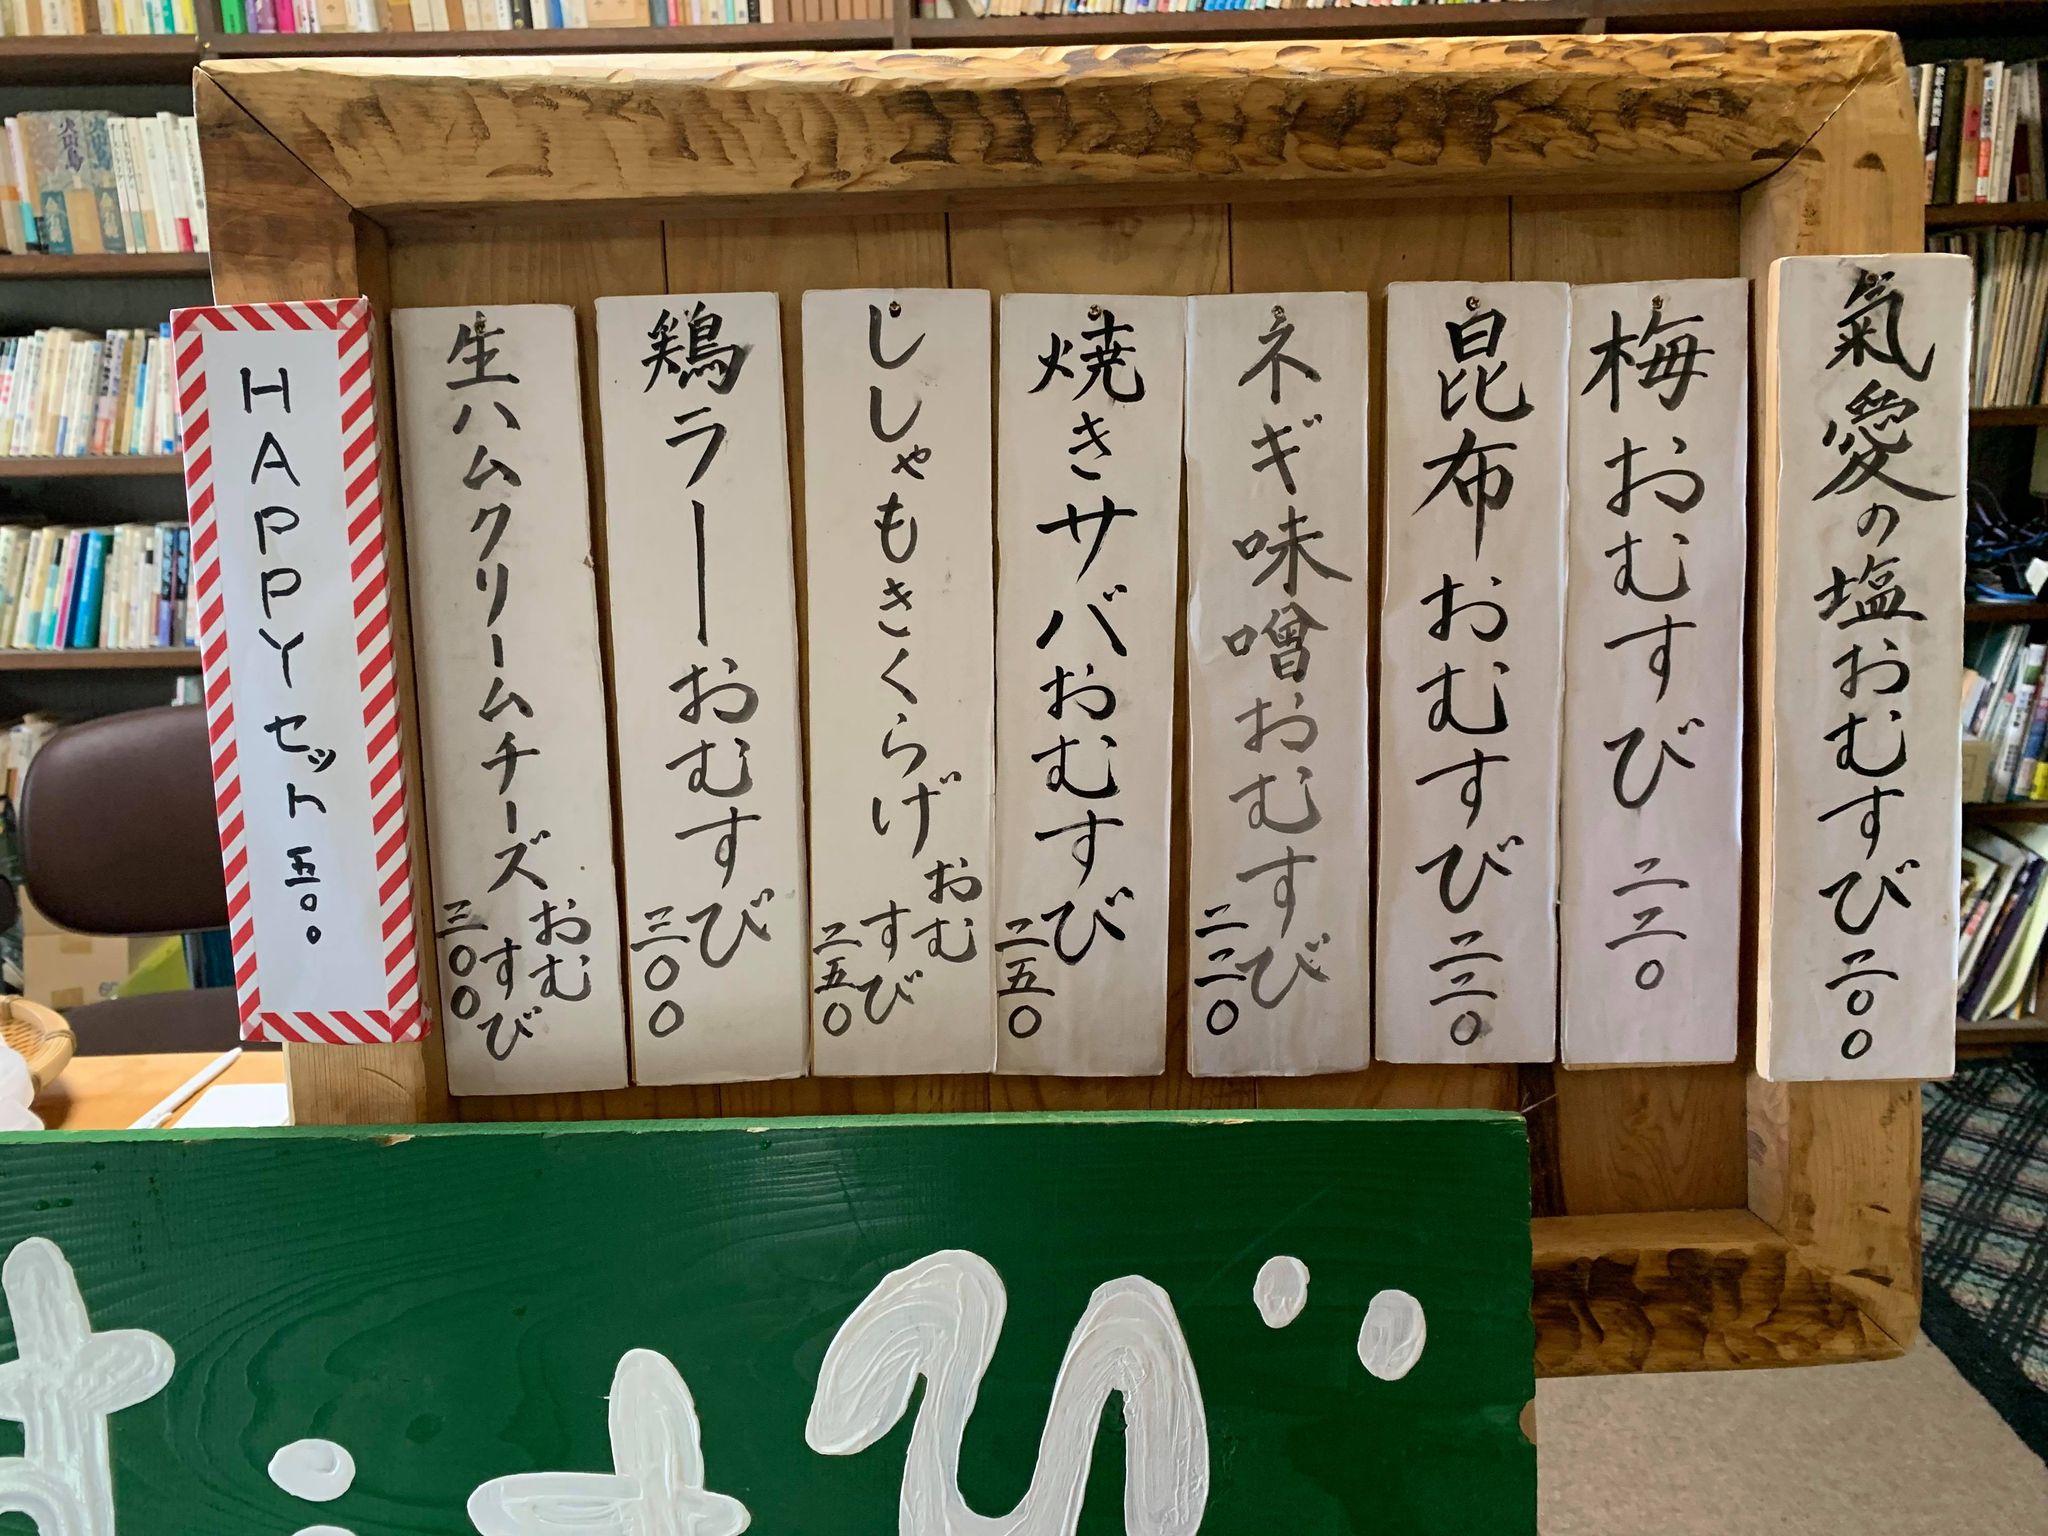 氣愛の塩おむすび二〇〇
梅おむすび 二二〇
昆布おむすび二二〇
ネギ味噌おむすび
二二〇
焼きサバおむすび
二五〇
ししゃもきくらげおむ
すび
二五〇
鶏ラーおむすび
三〇〇
生ハムクリームチーズおむ
すび
三〇〇
HAPPYセット五〇〇
むすび
火の鳥